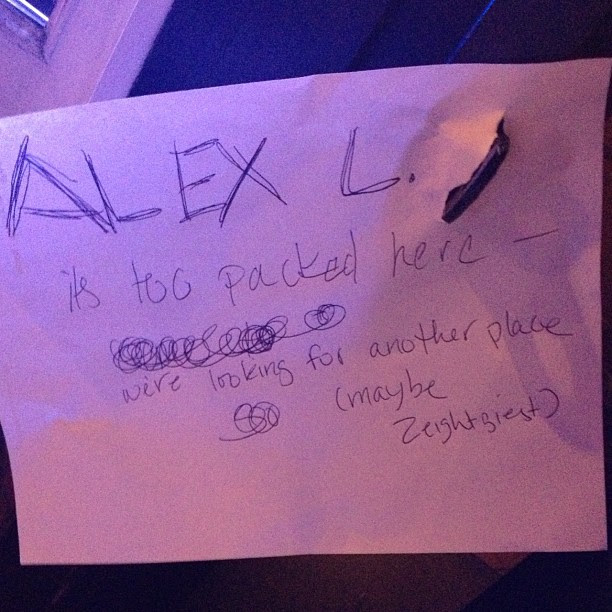 ALEX L.
its too packed here —
we're looking for another place
(maybe
Zeightgiest)